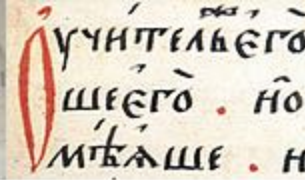 Оучительєго
шеєго . но
мѣꙗше . н